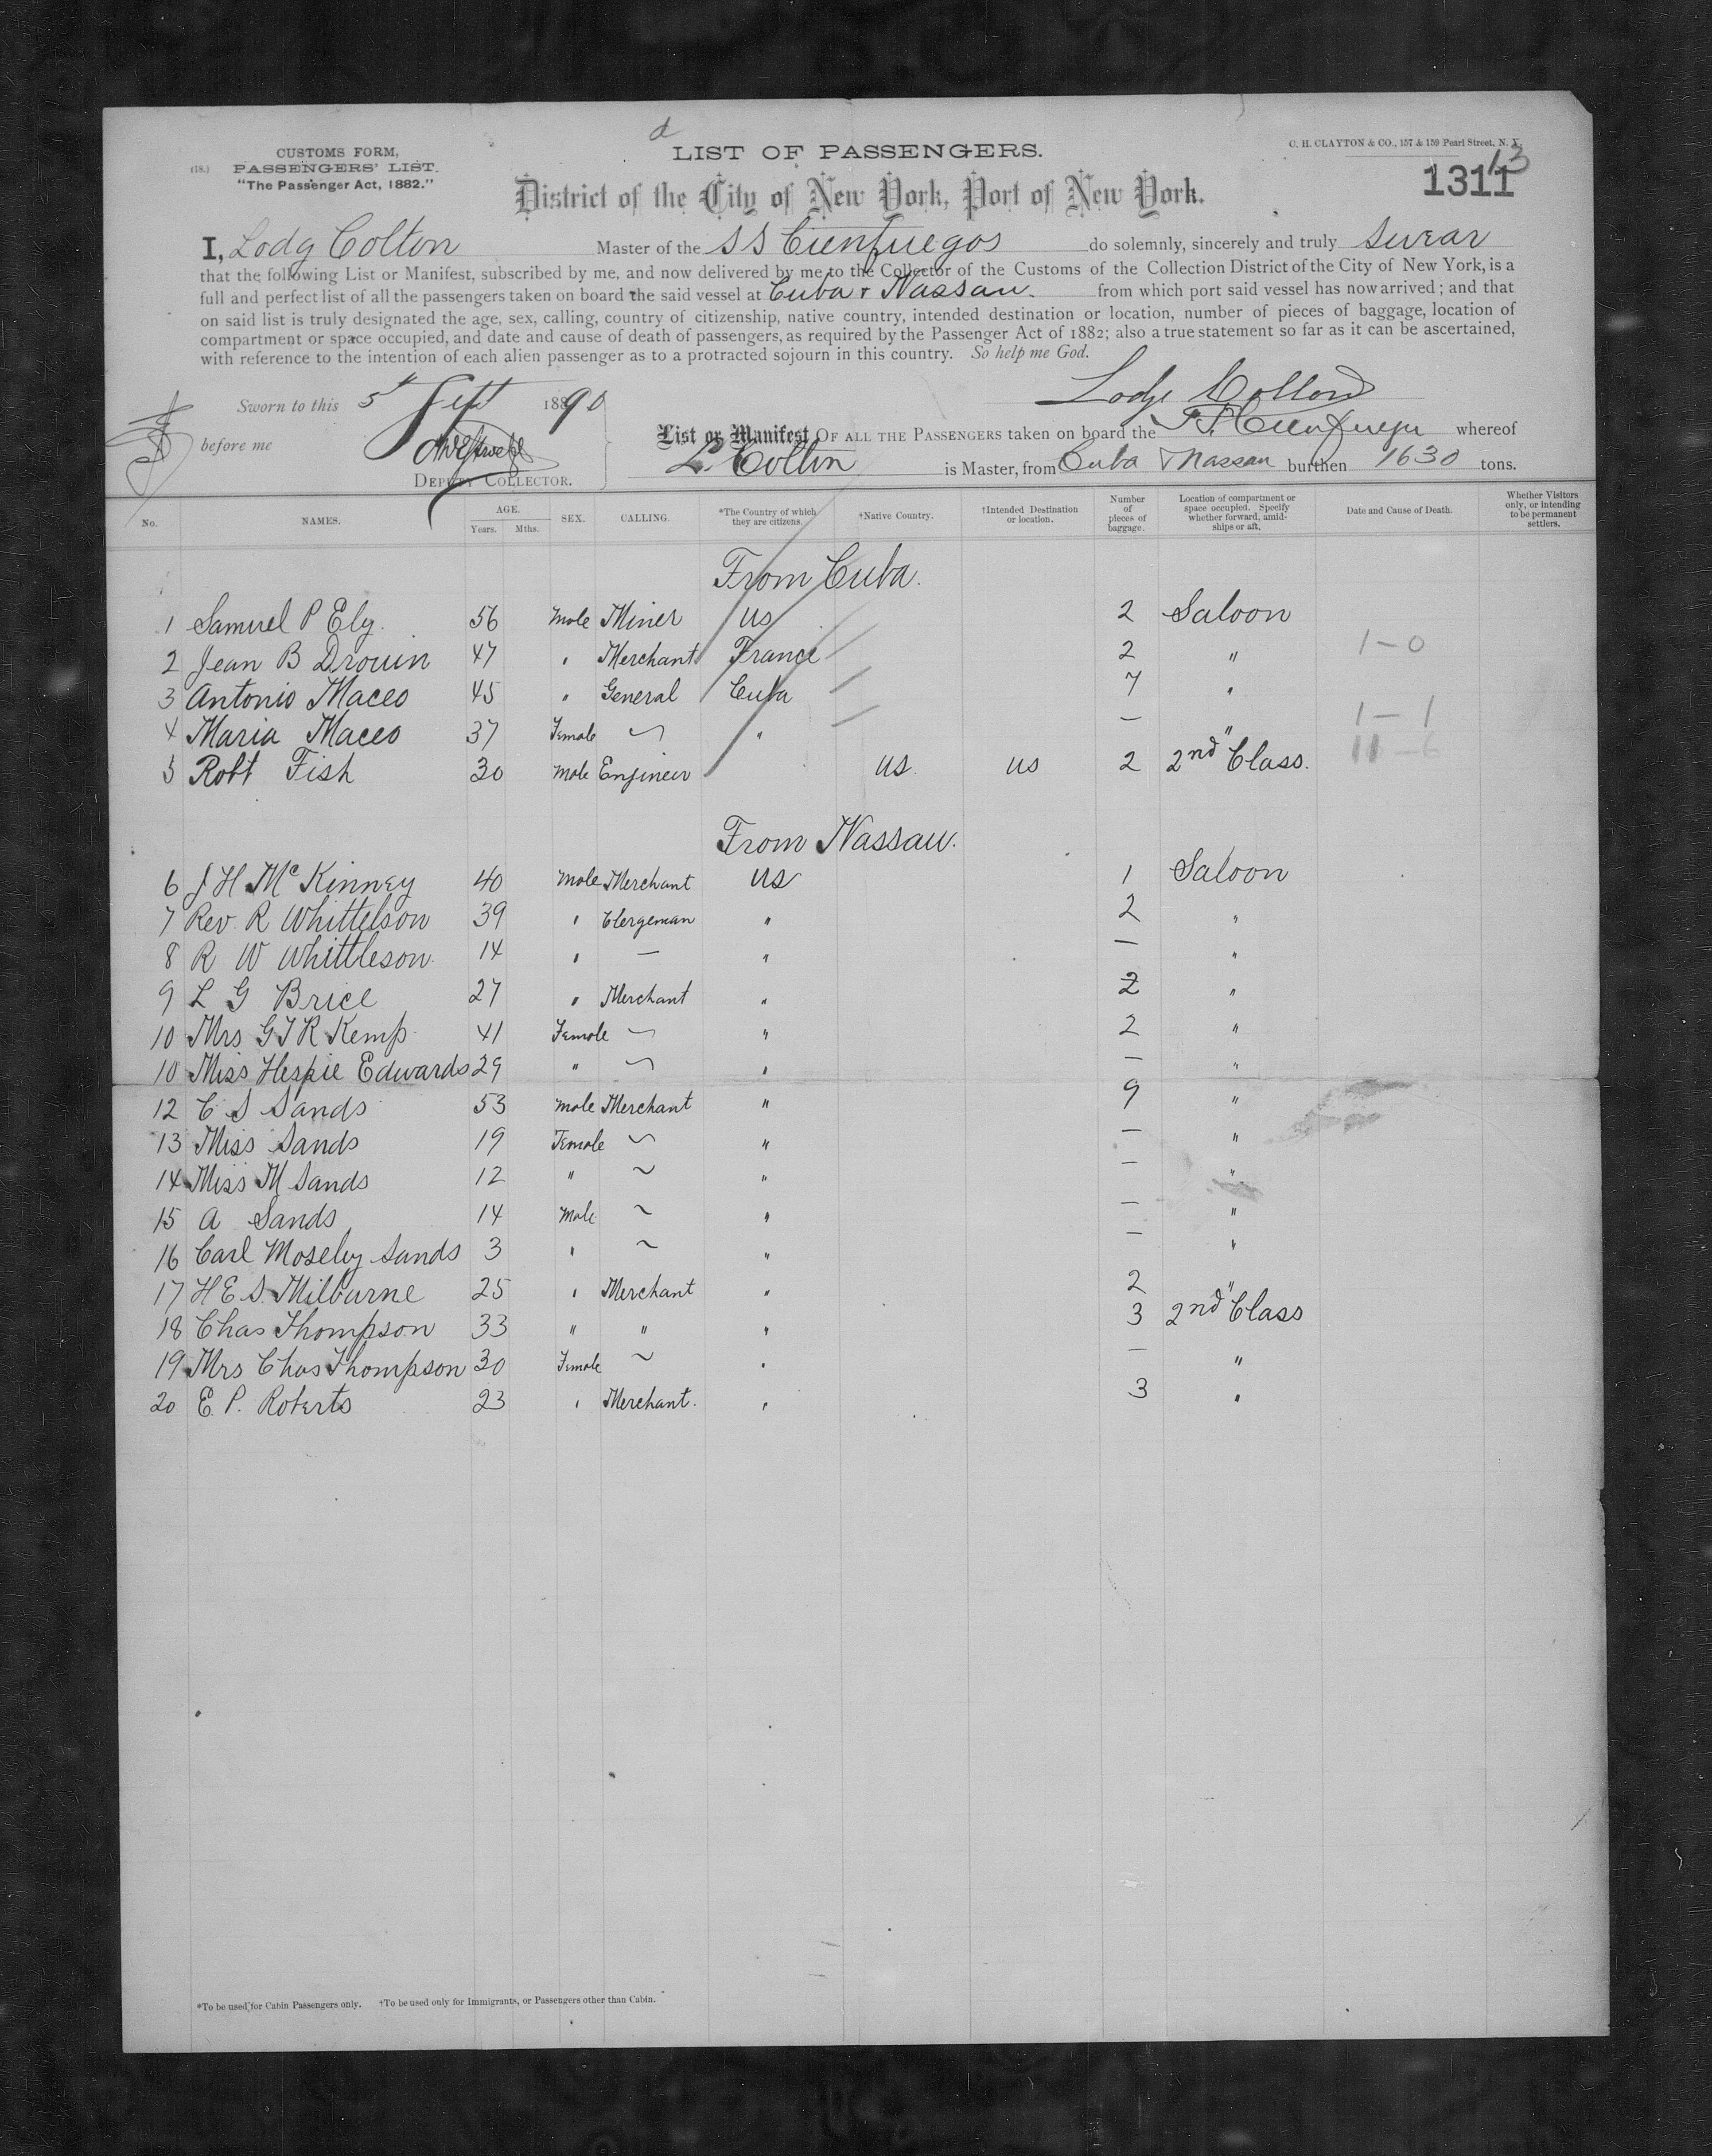 d
CUSTOMS FORM,
LIST OF PASSENGERS.
C. H. CLAYTON & CO., 157 & 159 Pearl Street, N. Y.
(18.) PASSENGERS' LIST.
"The Passenger Act, 1882."
1311
13
District of the City of New York, Port of New York.
I, Lodg Colton Master of the SS Cienfuegos do solemnly, sincerely and truly swear
that the following List or Manifest, subscribed by me, and now delivered by me to the Collector of the Customs of the Collection District of the City of New York, is a
full and perfect list of all the passengers taken on board the said vessel at Cuba & Nassau. from which port said vessel has now arrived; and that
on said list is truly designated the age, sex, calling, country of citizenship, native country, intended destination or location, number of pieces of baggage, location of
compartment or space occupied, and date and cause of death of passengers, as required by the Passenger Act of 1882; also a true statement so far as it can be ascertained,
with reference to the intention of each alien passenger as to a protracted sojourn in this country. So help me God.
Lodge Colton
Sworn to this 5" Sept 1890
before me
DEPUTY COLLECTOR.
List or Manifest OF ALL THE PASSENGERS taken on board the SS Cienfuegos whereof
L. Colton is Master, from Cuba & Nassau burthen 1630 tons.
No. NAMES. AGE. Years. Mths. SEX. CALLING. *The Country of which they are citizens. †Native Country. †Intended Destination or location. Number of pieces of baggage. Location of compartment or space occupied. Specify whether forward, amidships or aft. Date and Cause of Death. Whether Visitors only, or intending to be permanent settlers.
From Cuba.
1 Samuel P Ely. 56 Male Miner US 2 Saloon
2 Jean B Drouin 47 " Merchant France 2 " 1-0
3 Antonio Maceo 45 " General Cuba 7 "
4 Maria Maceo 37 Female ~ " — " 1-1
5 Robt Fish 30 Male Engineer US US 2 2nd Class. 11-6
From Nassau.
6 J H McKinney 40 Male Merchant US 1 Saloon
7 Rev. R Whittelson 39 " Clergeman " 2 "
8 R W Whittleson 14 " — " — "
9 L G Brice 27 " Merchant " 2 "
10 Mrs G T R Kemp 41 Female ~ " 2 "
10 Miss Hespie Edwards 29 " ~ " — "
12 C S Sands 53 Male Merchant " 9 "
13 Miss Sands 19 Female ~ " — "
14 Miss M Sands 12 " ~ " — "
15 A Sands 14 Male ~ " — "
16 Carl Moseley Sands 3 " ~ " — "
17 H E S. Milburne 25 " Merchant " 2 "
18 Chas Thompson 33 " " " 3 2nd Class
19 Mrs Chas Thompson 30 Female ~ " — "
20 E. P. Roberts 23 " Merchant. " 3 "
*To be used for Cabin Passengers only. †To be used only for Immigrants, or Passengers other than Cabin.